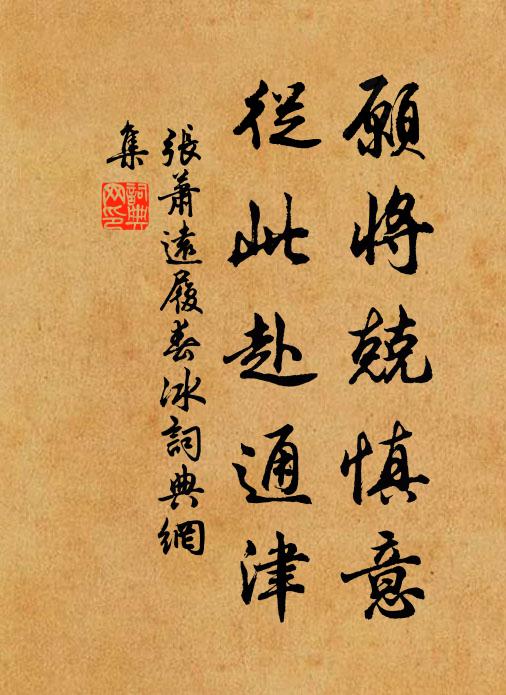 願將兢慎意
從此赴通津
張蕭遠履春冰詞典網
集
詞典網印